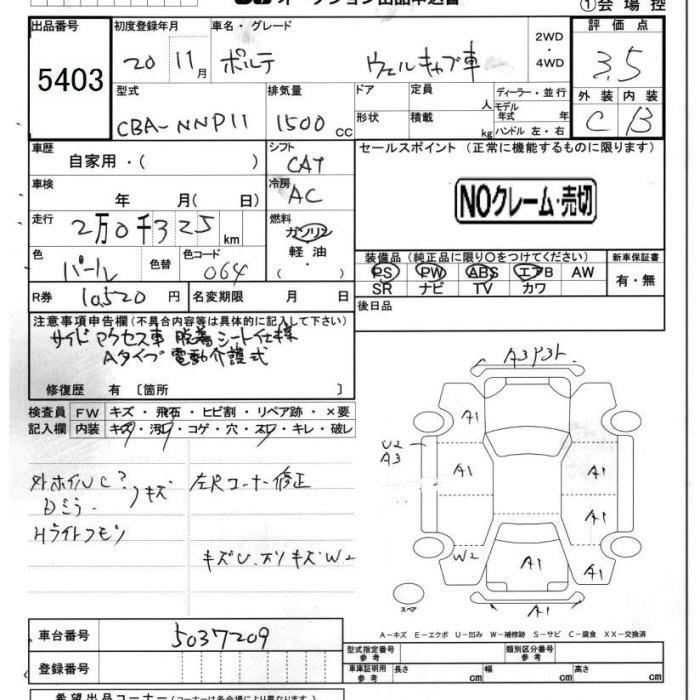 オークション出品申込書
①会場控
出品番号 初度登録年月 車名・グレード 2WD・4WD 評価点
5403 20 11月 ポルテ ウェルキャブ車 3.5
型式 排気量 ドア 定員 人 ディーラー・並行 外装 内装
CBA-NNP11 1500cc 形状 積載 kg モデル年式 年 ハンドル 左・右 C B
車歴 自家用・( ) シフト CAT セールスポイント (正常に機能するものに限ります)
車検 年 月( 日) 冷房 AC NOクレーム・売切
走行 2万0千325km 燃料 ガソリン 軽油 ・( )
色 パール 色替 色コード 064
装備品 (純正品に限り○をつけてください) 新車保証書
PS PW ABS エアB AW 有・無
SR ナビ TV カワ
R券 10520円 名変期限 月 日 後日品
注意事項申告欄(不具合内容等は具体的に記入して下さい)
サイドアクセス車 脱着シート仕様
Aタイプ 電動介護式
修復歴 有 〔箇所 〕
検査員 FW キズ・飛石・ヒビ割・リペア跡・×要
記入欄 内装 キズ・汚レ・コゲ・穴・スレ・キレ・破レ
外ホイルUC? 左Rコーナー修正
Dミラー キズ
Hライトクモリ
キズU.ズリキズW2
A3 P3
A1
U2
A3
A1 A1
A1
W2 A1 A1
A1
スペア
A-キズ E-エクボ U-凹み W-補修跡 S-サビ C-腐食 XX-交換済
車台番号 5037209
登録番号
型式指定番号 参考 類別区分番号 参考
車庫証明用 参考 長さ cm 幅 cm 高さ cm
希望出品コーナー